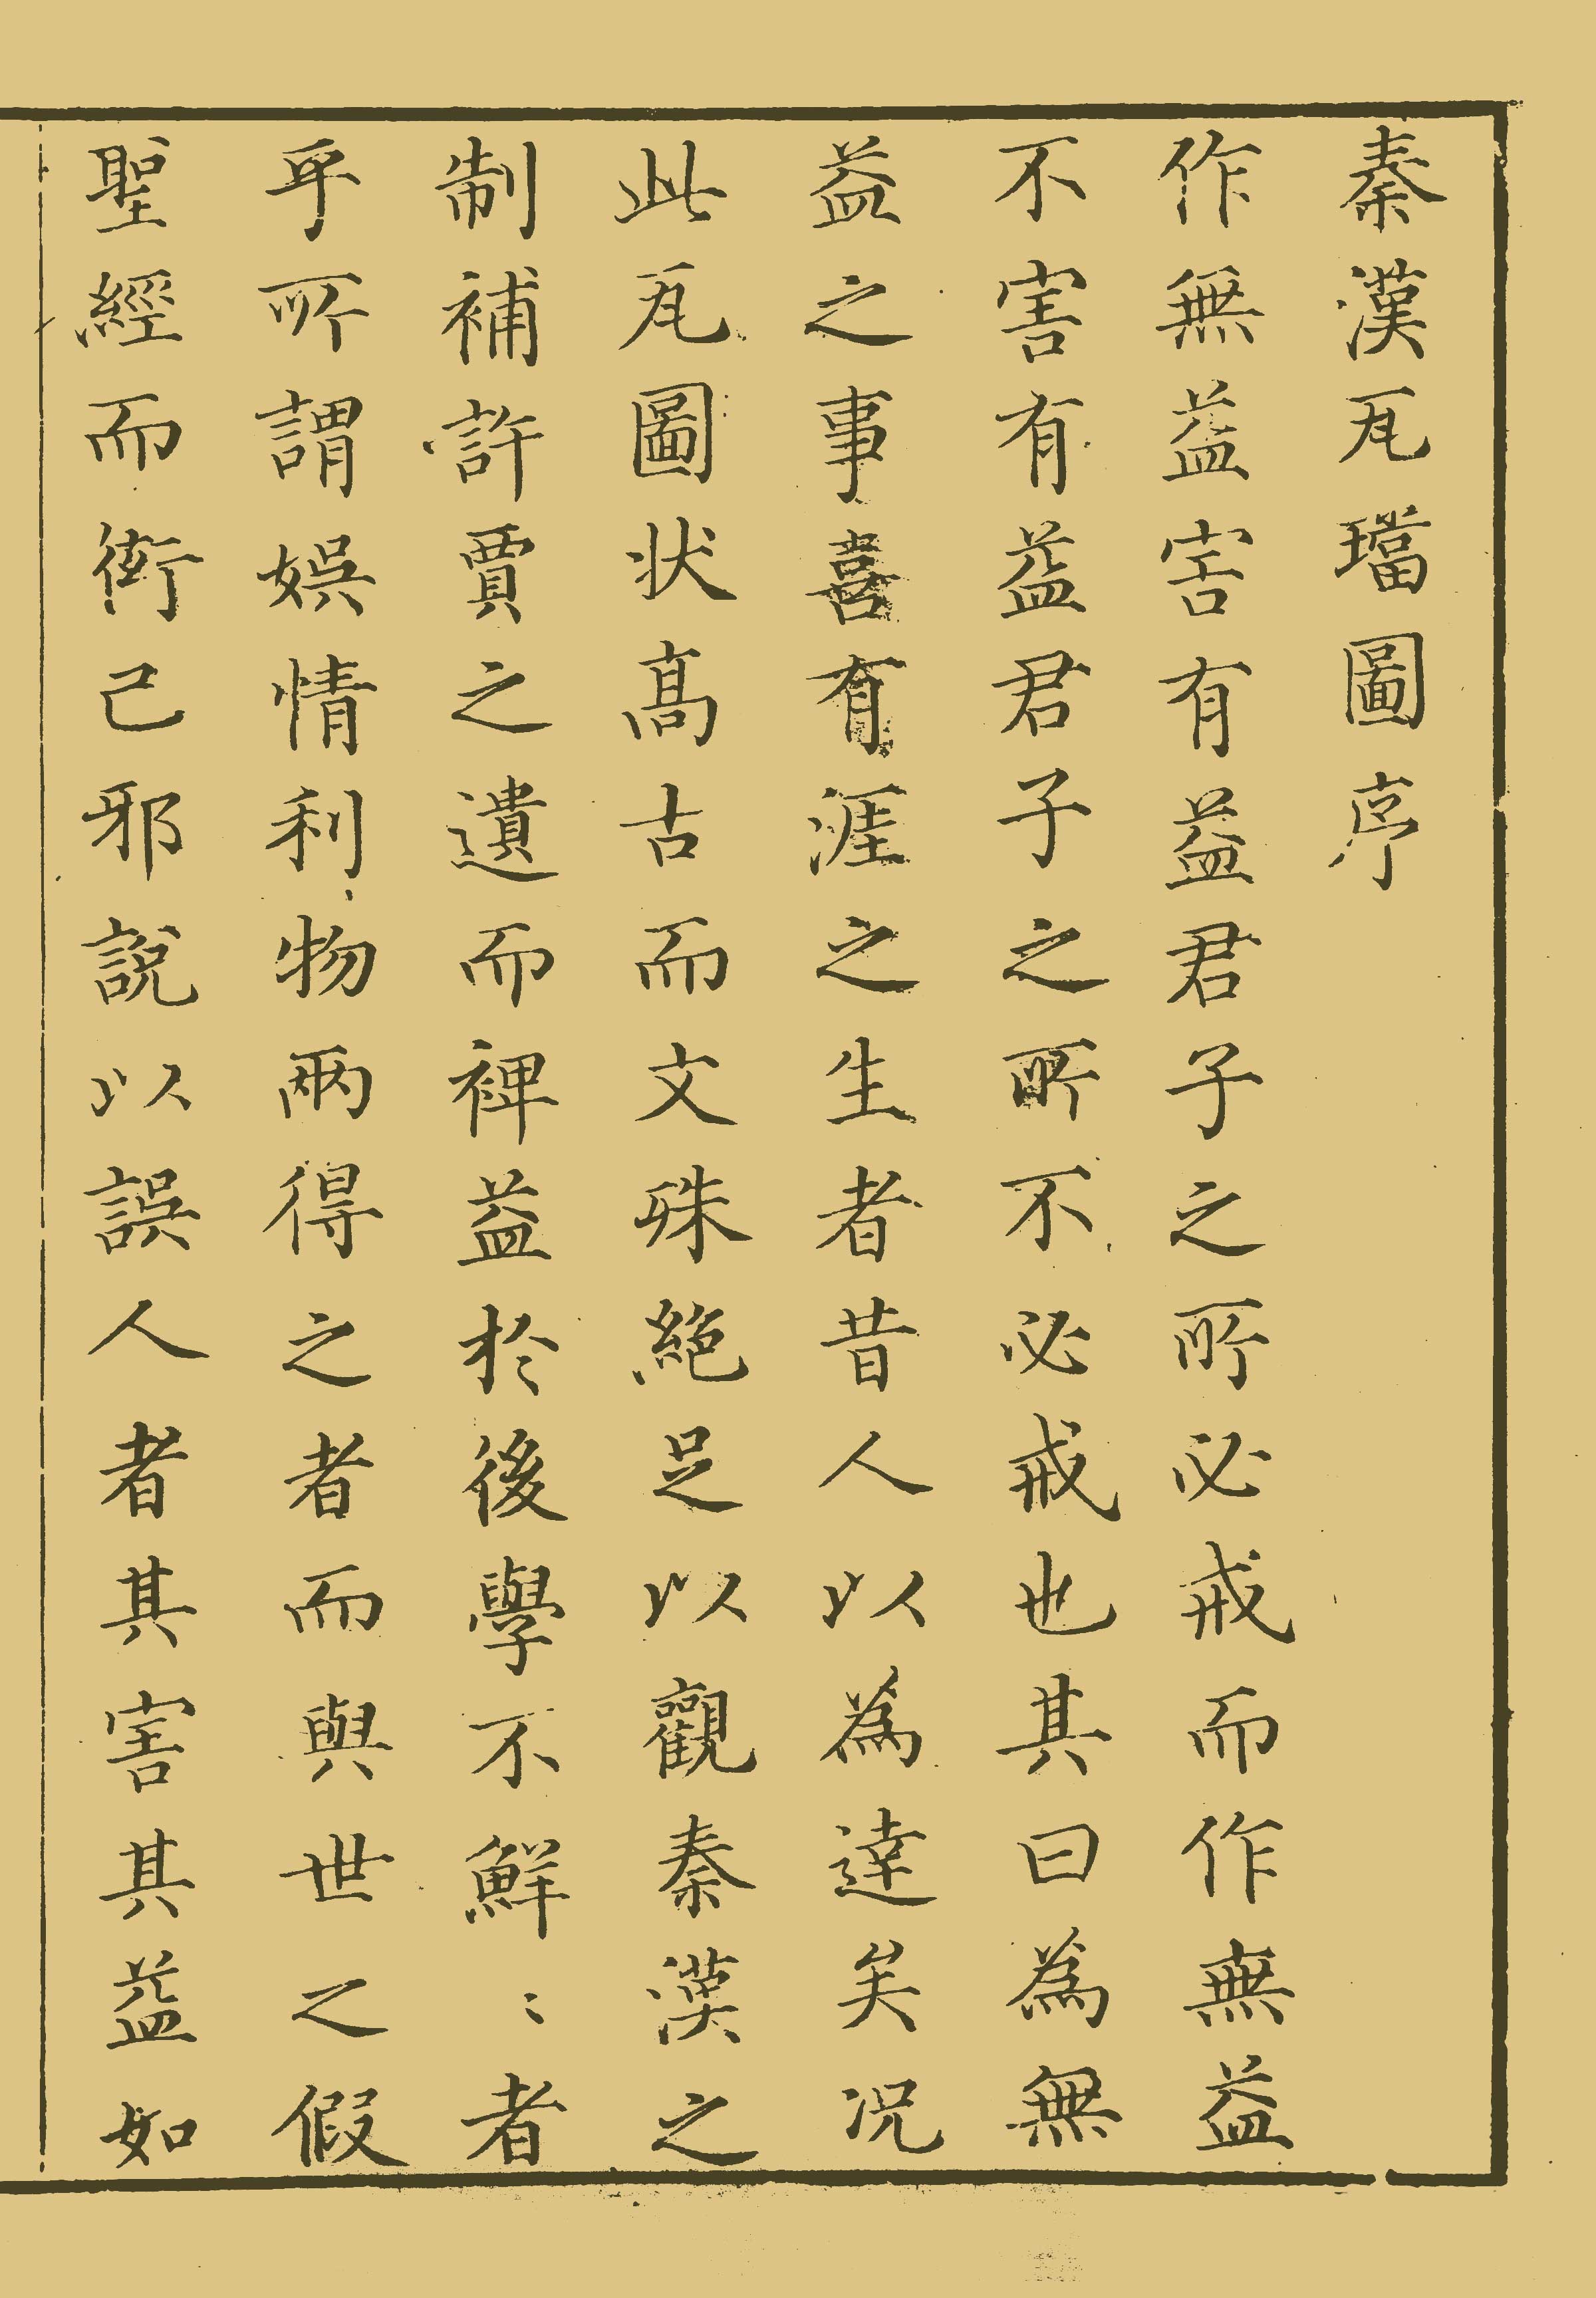 秦漢瓦璫圖序
作無益害有益君子之所必戒而作無益
不害有益君子之所不必戒也其曰為無
益之事喜有涯之生者昔人以為達矣况
此瓦圖状高古而文殊絶足以觀秦漢之
制補許賈之遺而裨益於後學不鮮〻者
乎所謂娯情利物兩得之者而與世之假
聖經而衒己邪說以誤人者其害其益如